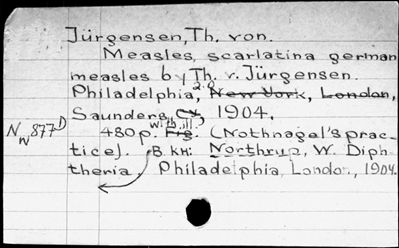 Jürgensen, Th. von.
Measles, scarlatina german
measles by Th. v. Jürgensen.
Philadelphia, New York, London,
Saunders, 1904.
Nw 877 D
480 p. with ill. Fig. (Nothnagel's prac-
tice). B. KH: Northrup, W. Diph
theria. Philadelphia, London, 1904.